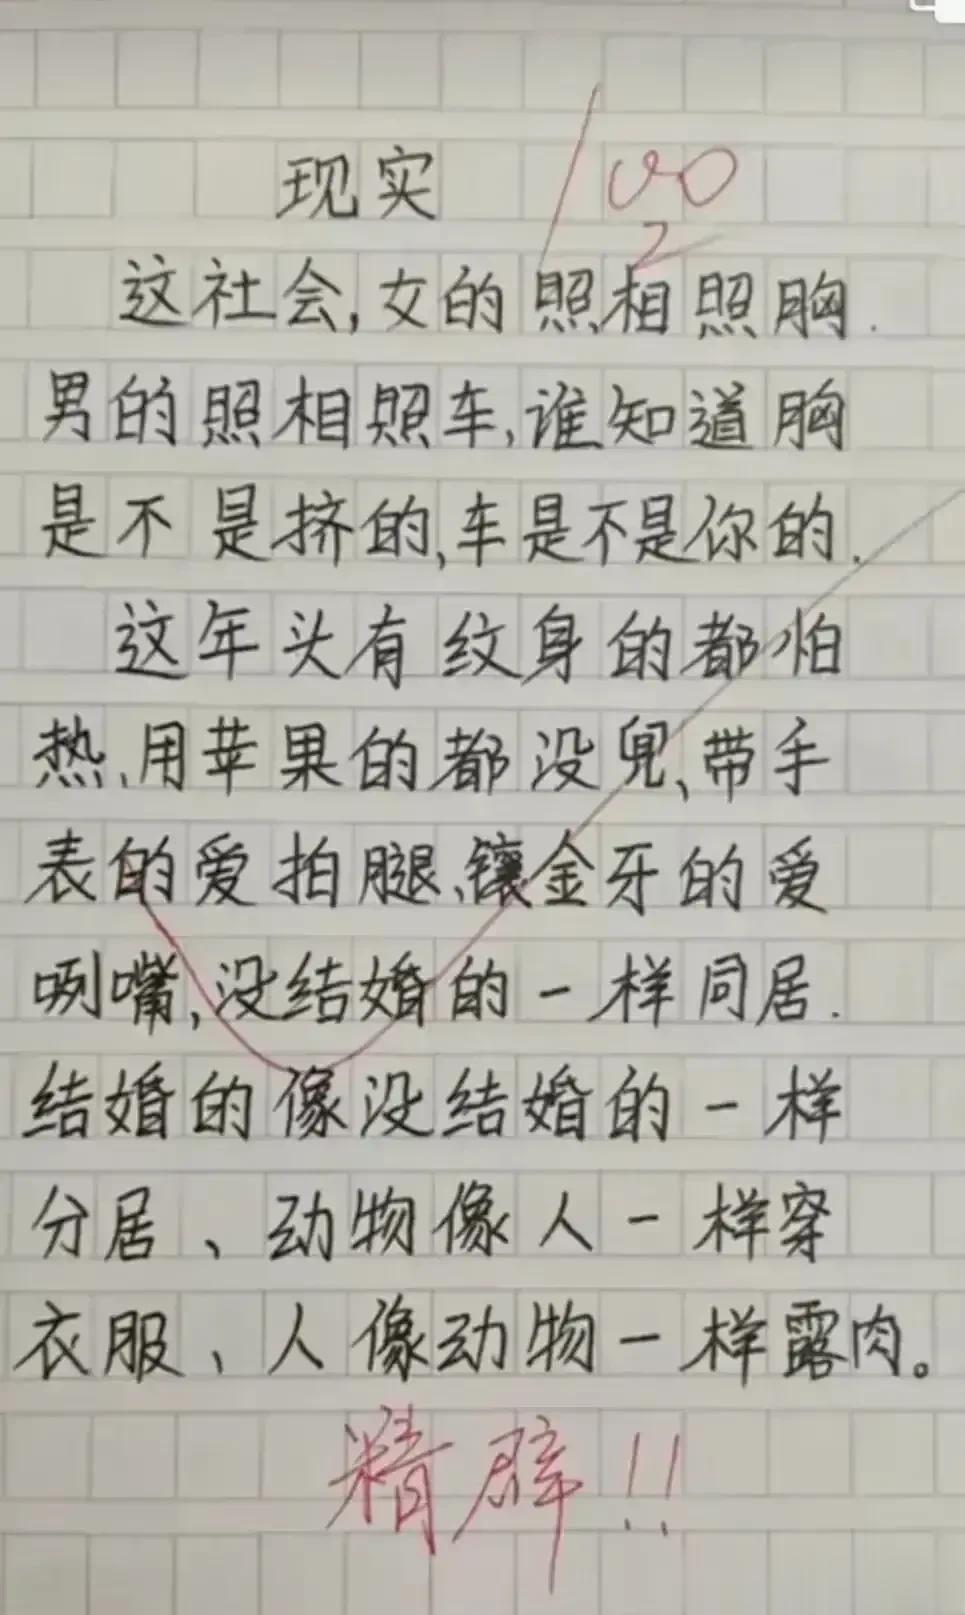 现实
100
这社会,女的照相照胸.
男的照相照车,谁知道胸
是不是挤的,车是不是你的.
这年头有纹身的都怕
热、用苹果的都没兜、带手
表的爱拍腿、镶金牙的爱
咧嘴,没结婚的一样同居.
结婚的像没结婚的一样
分居、动物像人一样穿
衣服、人像动物一样露肉。
精辟!!